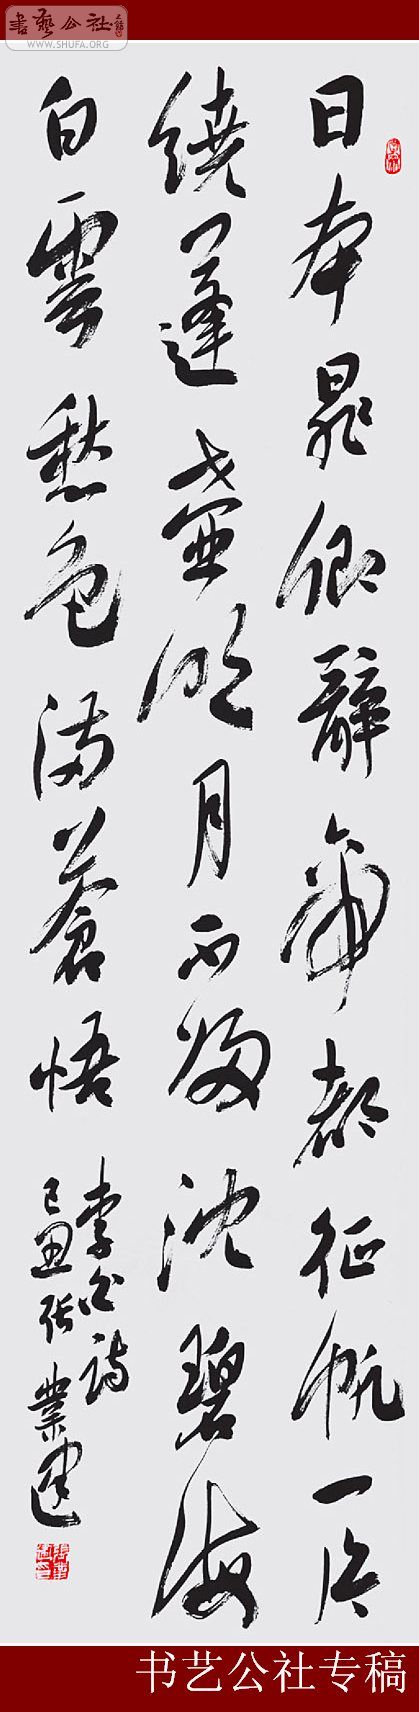 書藝公社
WWW.SHUFA.ORG
日本晁卿辭帝都征帆一片
繞蓬壺明月不歸沈碧海
白雲愁色滿蒼悟
李白詩
己丑張業建
书艺公社专稿